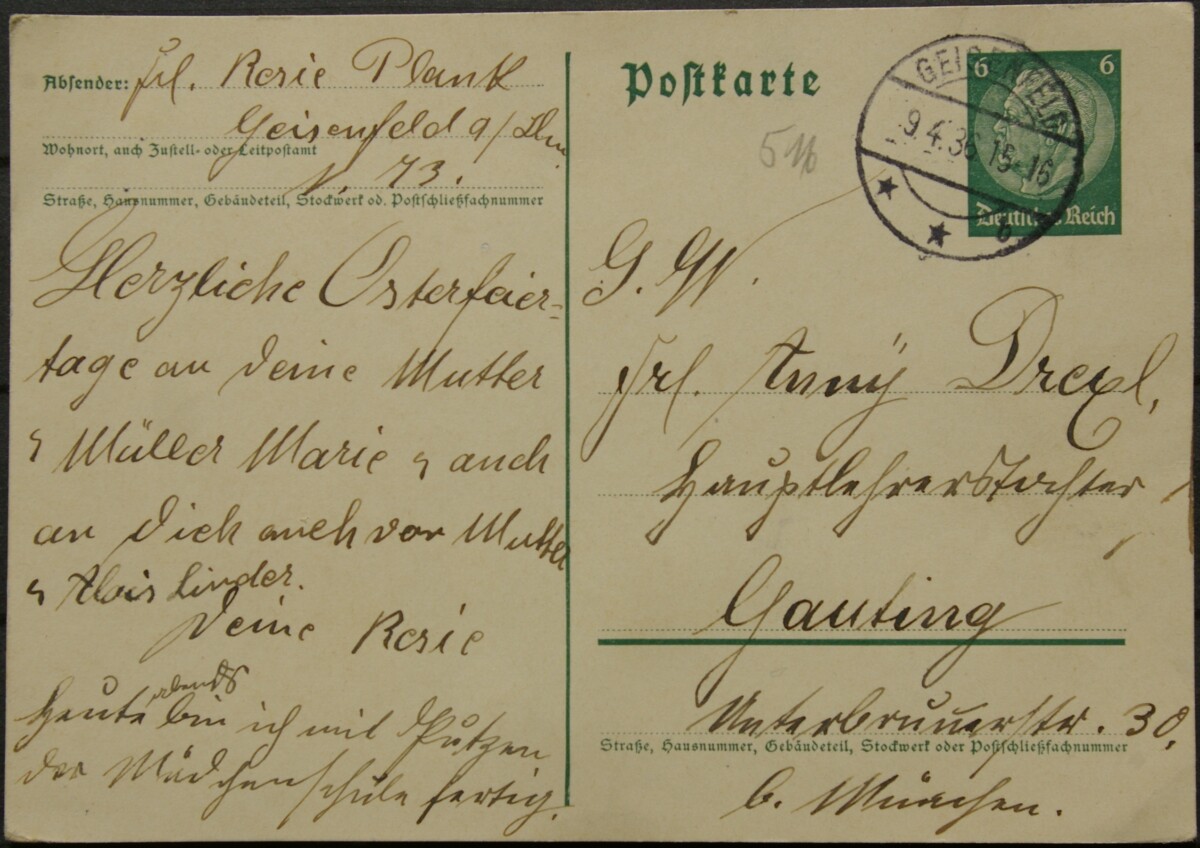 Absender: Frl. Rosie Plank
Geisenfeld a/Ilm
Wohnort, auch Zustell- oder Leitpostamt
N. 73.
Straße, Hausnummer, Gebäudeteil, Stockwerk od. Postschließfachnummer
Herzliche Osterfeier=
tage an Deine Mutter
u Müller Marie u auch
an Dich auch von Mutter
u Alois Linder.
Deine Rosie
Heute abends bin ich mit Putzen
der Mädchenschule fertig.
Postkarte
GEISENFELD
9.4.36 15-16
b
6 6
Deutsches Reich
G. W.
Frl. Anny Drexl,
Hauptlehrerstochter
Gauting
Unterbrunnerstr. 30,
Straße, Hausnummer, Gebäudeteil, Stockwerk oder Postschließfachnummer
b. München.